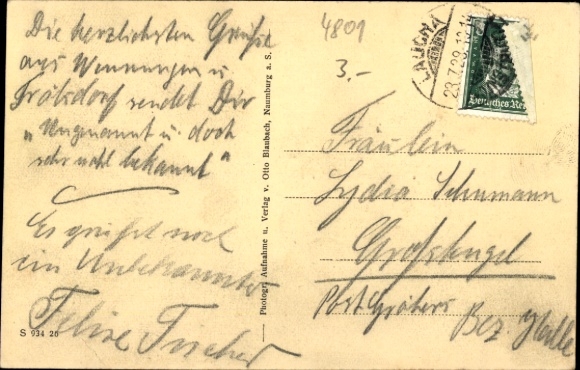 Die herzlichsten Grüße
aus Wennungen u
Tröbsdorf sendet Dir
„Ungenannt u. doch
sehr wohl bekannt"
Es grüßt noch
ein Unbekannter
Felix Fischer
S 934 26
Photogr. Aufnahme u. Verlag v. Otto Blaubach, Naumburg a. S.
4801
3.-
LAUCHA
23.7.29.
Deutsches Rei
Fräulein
Lydia Schumann
Großkugel
Post Gröbers
Bez. Halle